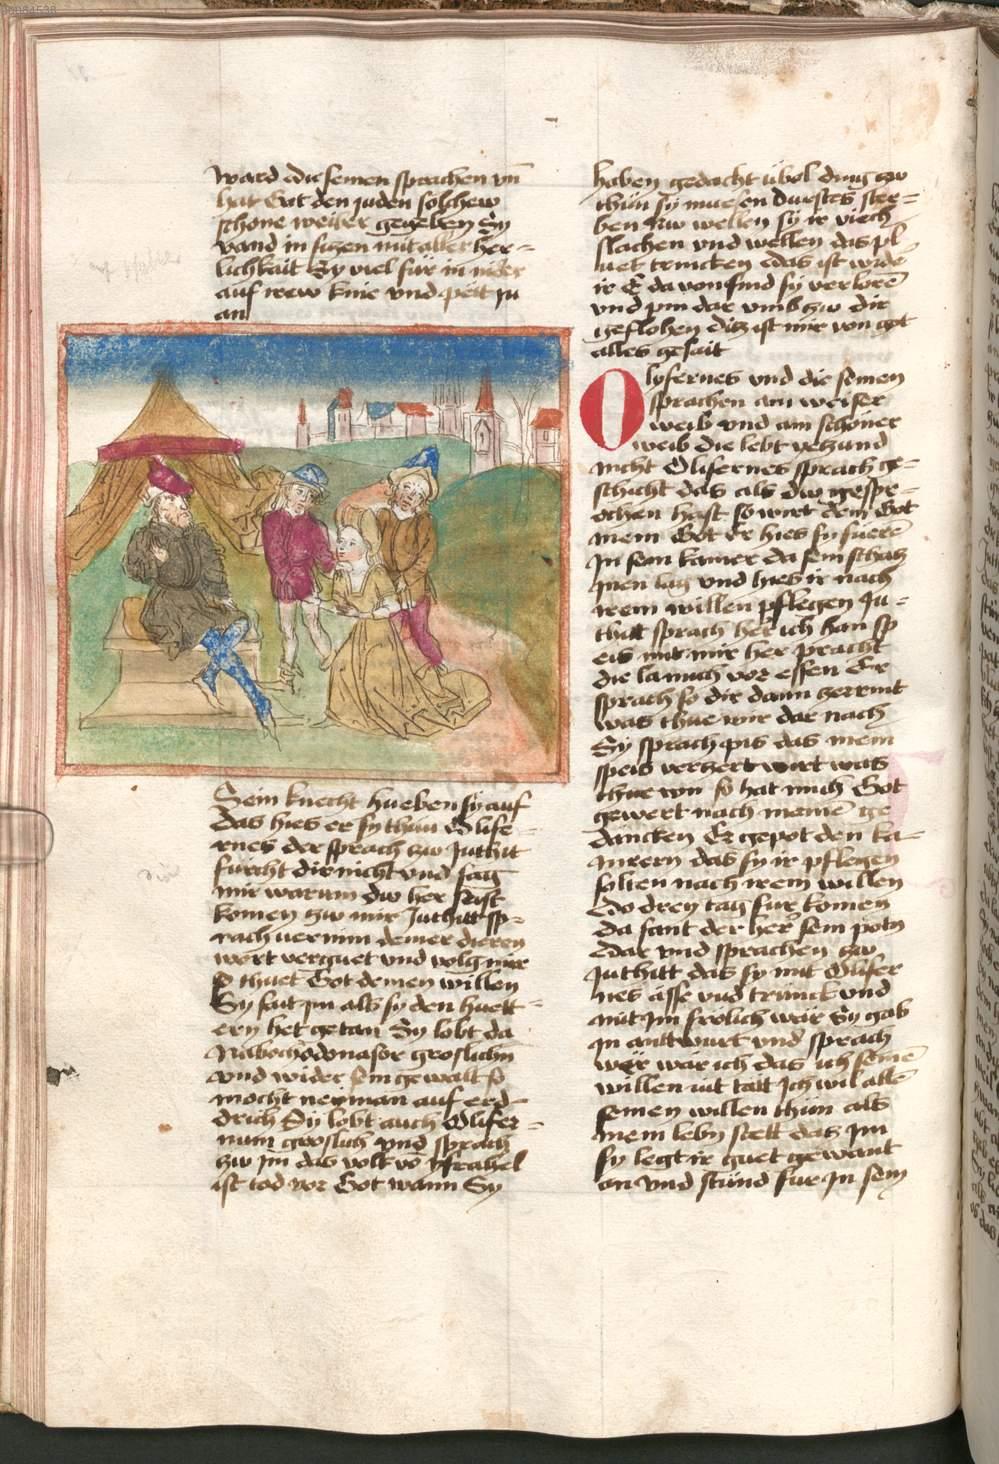 ward die seinen sprachen vn̄
hat Got den juden solhew
schone weiber gegeben Sy
vand in sitzen mit aller her=
lichkait Sy viel für in nider
auf irew knie vnd pett jn
an
Sein knecht hueben sy auf
das hies er sy thun Olife=
rnes der sprach zw Juthit
fürcht dir nicht vnd sag
mir warum dw her seist
komen zw mir Juthitt sp=
rach vernim deiner dieren
wort verguet vnd volg mir
so thuet Got deinen willen
Sy sait im als sy den huett=
ern het getan Sy lobt da
Nabochodonasor groslichn
vnd wider sein gewalt so
mocht neyman auf erd=
drich Sy lobt auch Olifer=
num groslich vnd sprach
zw im das volk vō Israhel
ist tod vor Got wann Sy
haben gedacht übol ding zw
thün sy muesen durstes ster=
ben Nw wellen sy ir viech
slachen vnd wellen das pl
uet trincken das ist wide
ir E da von sind sy verlorē
vnd pin dar vmb zw dir
geflohen ditz ist mir von got
alles gesait
Olyfernes vnd die seinen
sprachen ain weiser
weib vnd ain schöner
weib die lebt yetzund
nicht Olifernes sprach ge=
schicht das als dw gespr=
ochen hast so wirt dein Got
mein Got Er hies sy fuerē
In sein kamer da sein schatz
inen lag vnd hies ir nach
irem willen pflegen Ju=
thitt sprach her ich han sp
eis mit mir her pracht
die la mich vor essen Er
sprach so dir dann zerrint
was thue wir dar nach
Sy sprach pis das mein
speis verzert wirt was
thue wir so hat mich Got
gewert nach meinē ge
dancken Er gepot den ka=
mrern das sy ir pflegen
solten nach irem willen
Do drey tag fur komen
da sant der her sein potn
dar vnd sprachen zw
Juthitt das sy mit Olifer
nes ässe vnd trünck vnd
mit im frolich wär Sy gab
in antwurt vnd sprach
wer wär ich das ich seinē
willen nit tätt Ich wil allē
seinen willen thün als
mein lebn stett das Im
sy legt ir guet gewant
an vnd stünd fur In sein